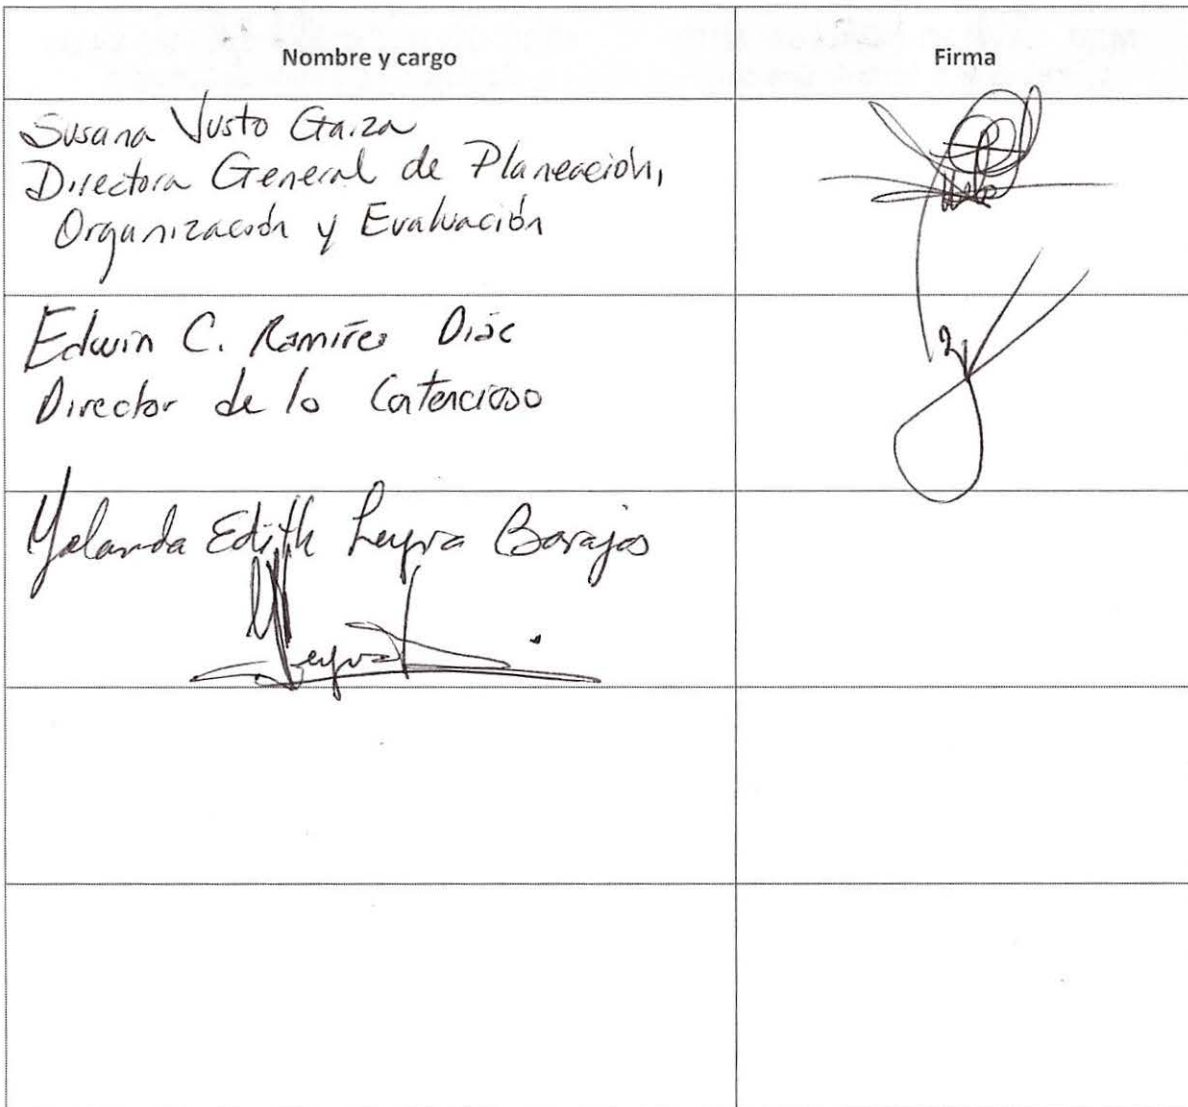 Nombre y cargo
Firma
Susana Justo Garza
Directora General de Planeación,
Organización y Evaluación
Edwin C. Ramírez Díaz
Director de lo Contencioso
Yolanda Edith Leyva Barajas
Leyva